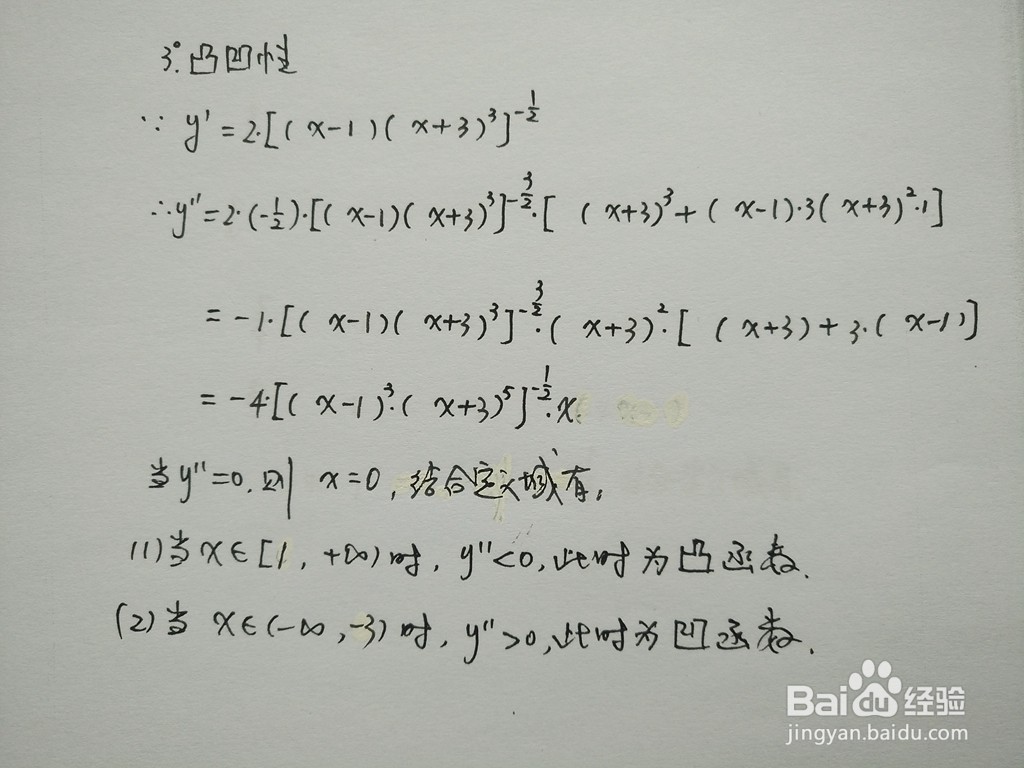 3°.凸凹性
∵ y' = 2·[(x-1)(x+3)³]^{-1/2}
∴y'' = 2·(-1/2)·[(x-1)(x+3)³]^{-3/2}·[(x+3)³+(x-1)·3(x+3)²·1]
= -1·[(x-1)(x+3)³]^{-3/2}·(x+3)²·[(x+3)+3·(x-1)]
= -4·[(x-1)³·(x+3)⁵]^{-1/2}·x.
当y''=0,则 x=0,结合定义域有,
(1)当x∈[1,+∞)时,y''<0,此时为凸函数.
(2)当 x∈(-∞,-3)时,y''>0,此时为凹函数.
Bai 经验
jingyan.baidu.com